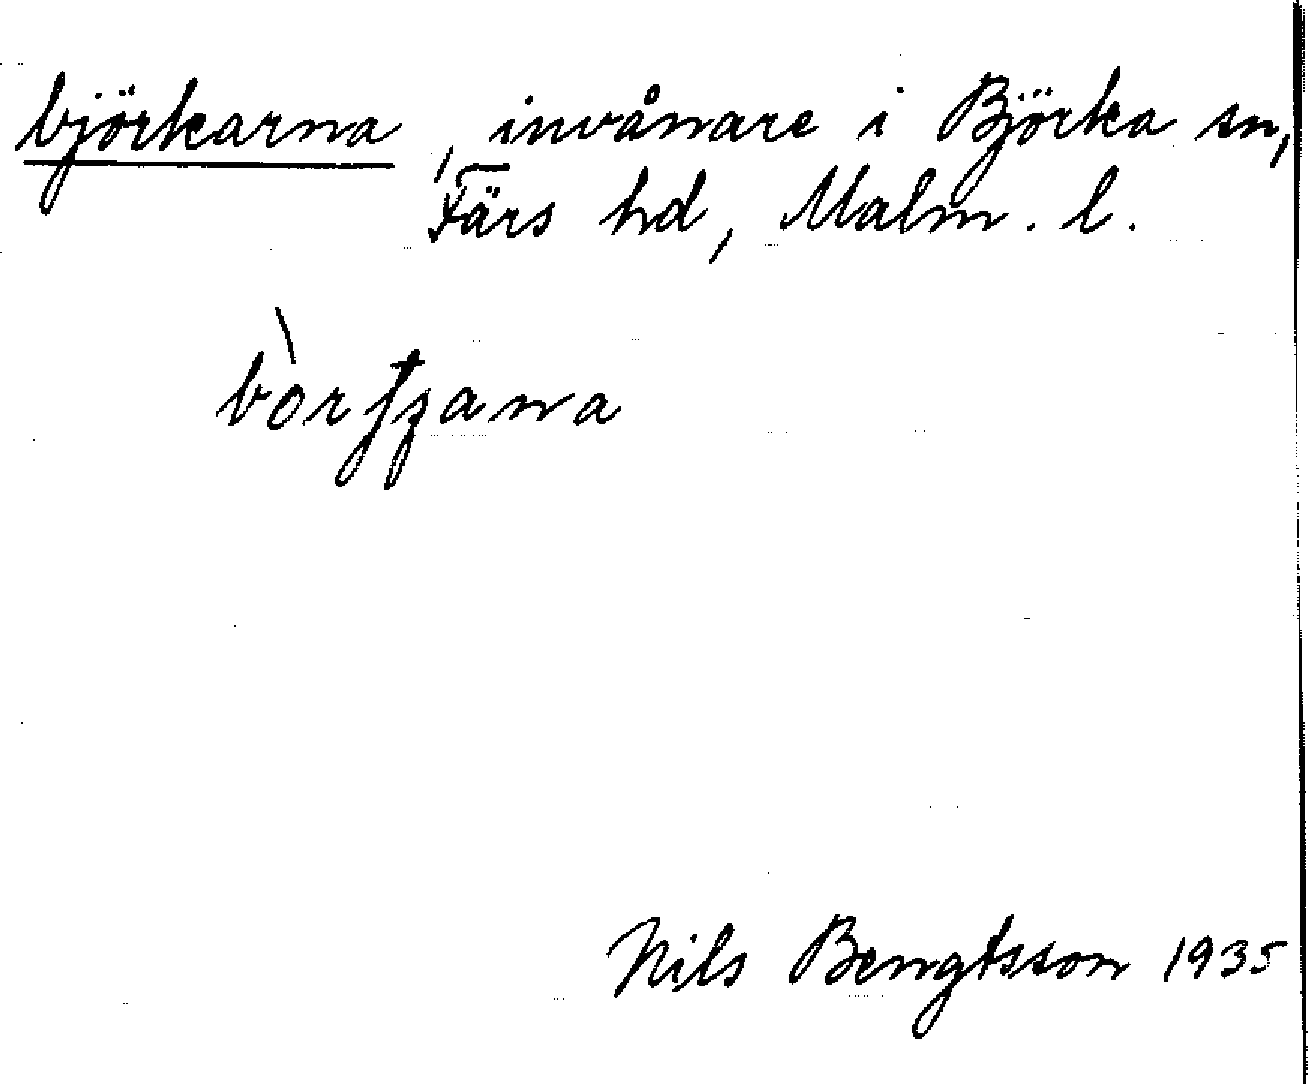 björkarna, invånare i Björka sn,
Färs hd, Malm. l.
Nils Bengtsson 1935